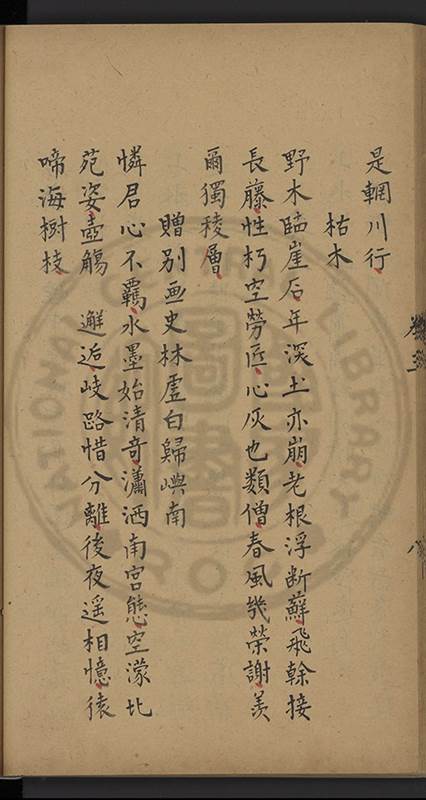 是輞川行
枯木
野木臨崖后年深土亦崩老根浮断蘚飛幹接
長藤性朽空勞匠心灰也類僧春風幾榮謝羡
爾獨稜層
贈別画史林虛白歸嶼南
憐君心不羈水墨始清奇瀟洒南宮態空濛北
苑姿壺觴邂逅岐路惜分離後夜遥相憶猿
啼海樹枝